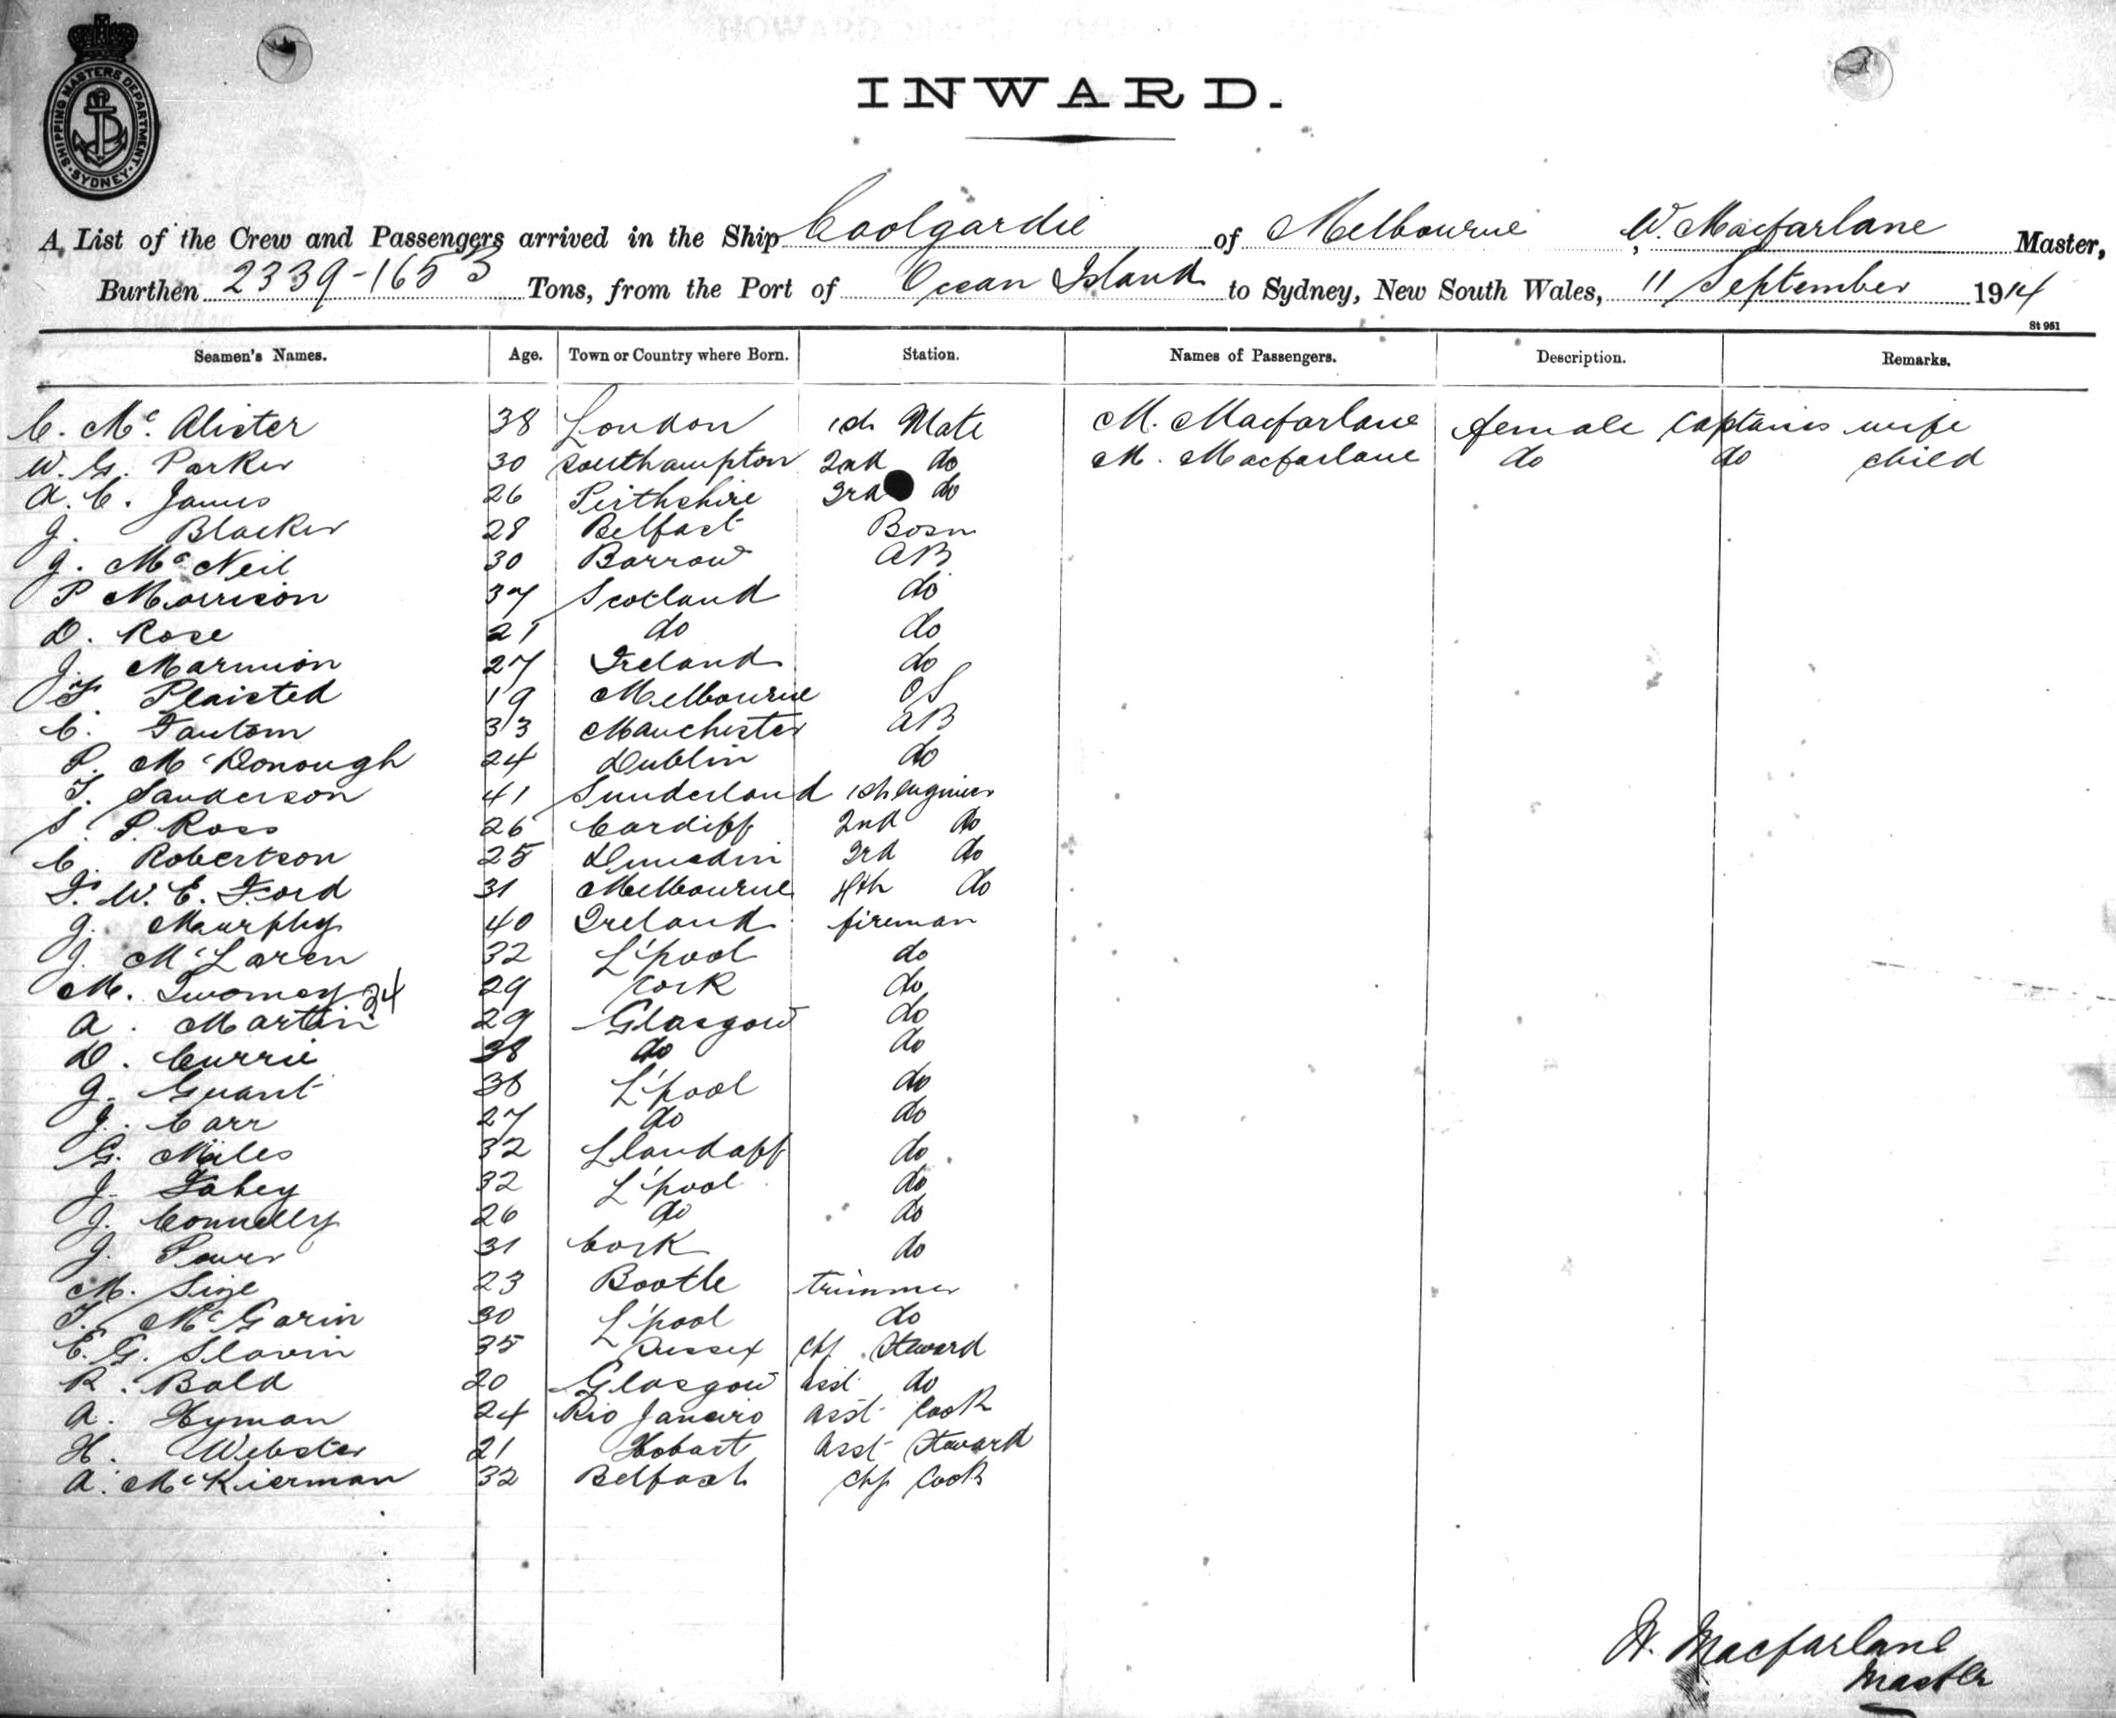 SHIPPING MASTERS DEPARTMENT · SYDNEY ·
INWARD.
A List of the Crew and Passengers arrived in the Ship Coolgardie of Melbourne, W. Macfarlane Master,
Burthen 2339-1653 Tons, from the Port of Ocean Island to Sydney, New South Wales, 11 September 1914
St 961
Seamen's Names. Age. Town or Country where Born. Station. Names of Passengers. Description. Remarks.
C. Mc. Alister 38 London 1st Mate M. Macfarlane female captains wife
W. G. Parker 30 Southampton 2nd do M. Macfarlane do do child
A. C. James 26 Perthshire 3rd do
J. Blacker 28 Belfast Bosn
J. McNeil 30 Barrow AB
P Morrison 37 Scotland do
D. Rose 21 do do
J. Marmion 27 Ireland do
F. Plaisted 19 Melbourne OS
C. Fantom 33 Manchester AB
P. McDonough 24 Dublin do
T. Sanderson 41 Sunderland 1st engineer
S. P. Ross 26 Cardiff 2nd do
C. Robertson 25 Dunedin 3rd do
F. W. E. Ford 31 Melbourne 4th do
J. Murphy 40 Ireland fireman
J. McLaren 32 L'pool do
M. Twomey 29 Cork do
24
A. Martin 29 Glasgow do
D. Currie 38 do do
J. Guant 38 L'pool do
J. Carr 27 do do
G. Miles 32 Llandaff do
J. Fahey 32 L'pool do
J. Connelly 26 do do
J. Power 31 Cork do
M. Size 23 Bootle trimmer
T. McGarin 30 L'pool do
C. G. Slavin 35 Sussex chf Steward
R. Bald 20 Glasgow asst do
A. Hyman 24 Rio Janeiro asst Cook
H. Webster 21 Hobart asst Steward
A. McKierman 32 Belfast chf Cook
W. Macfarlane
Master